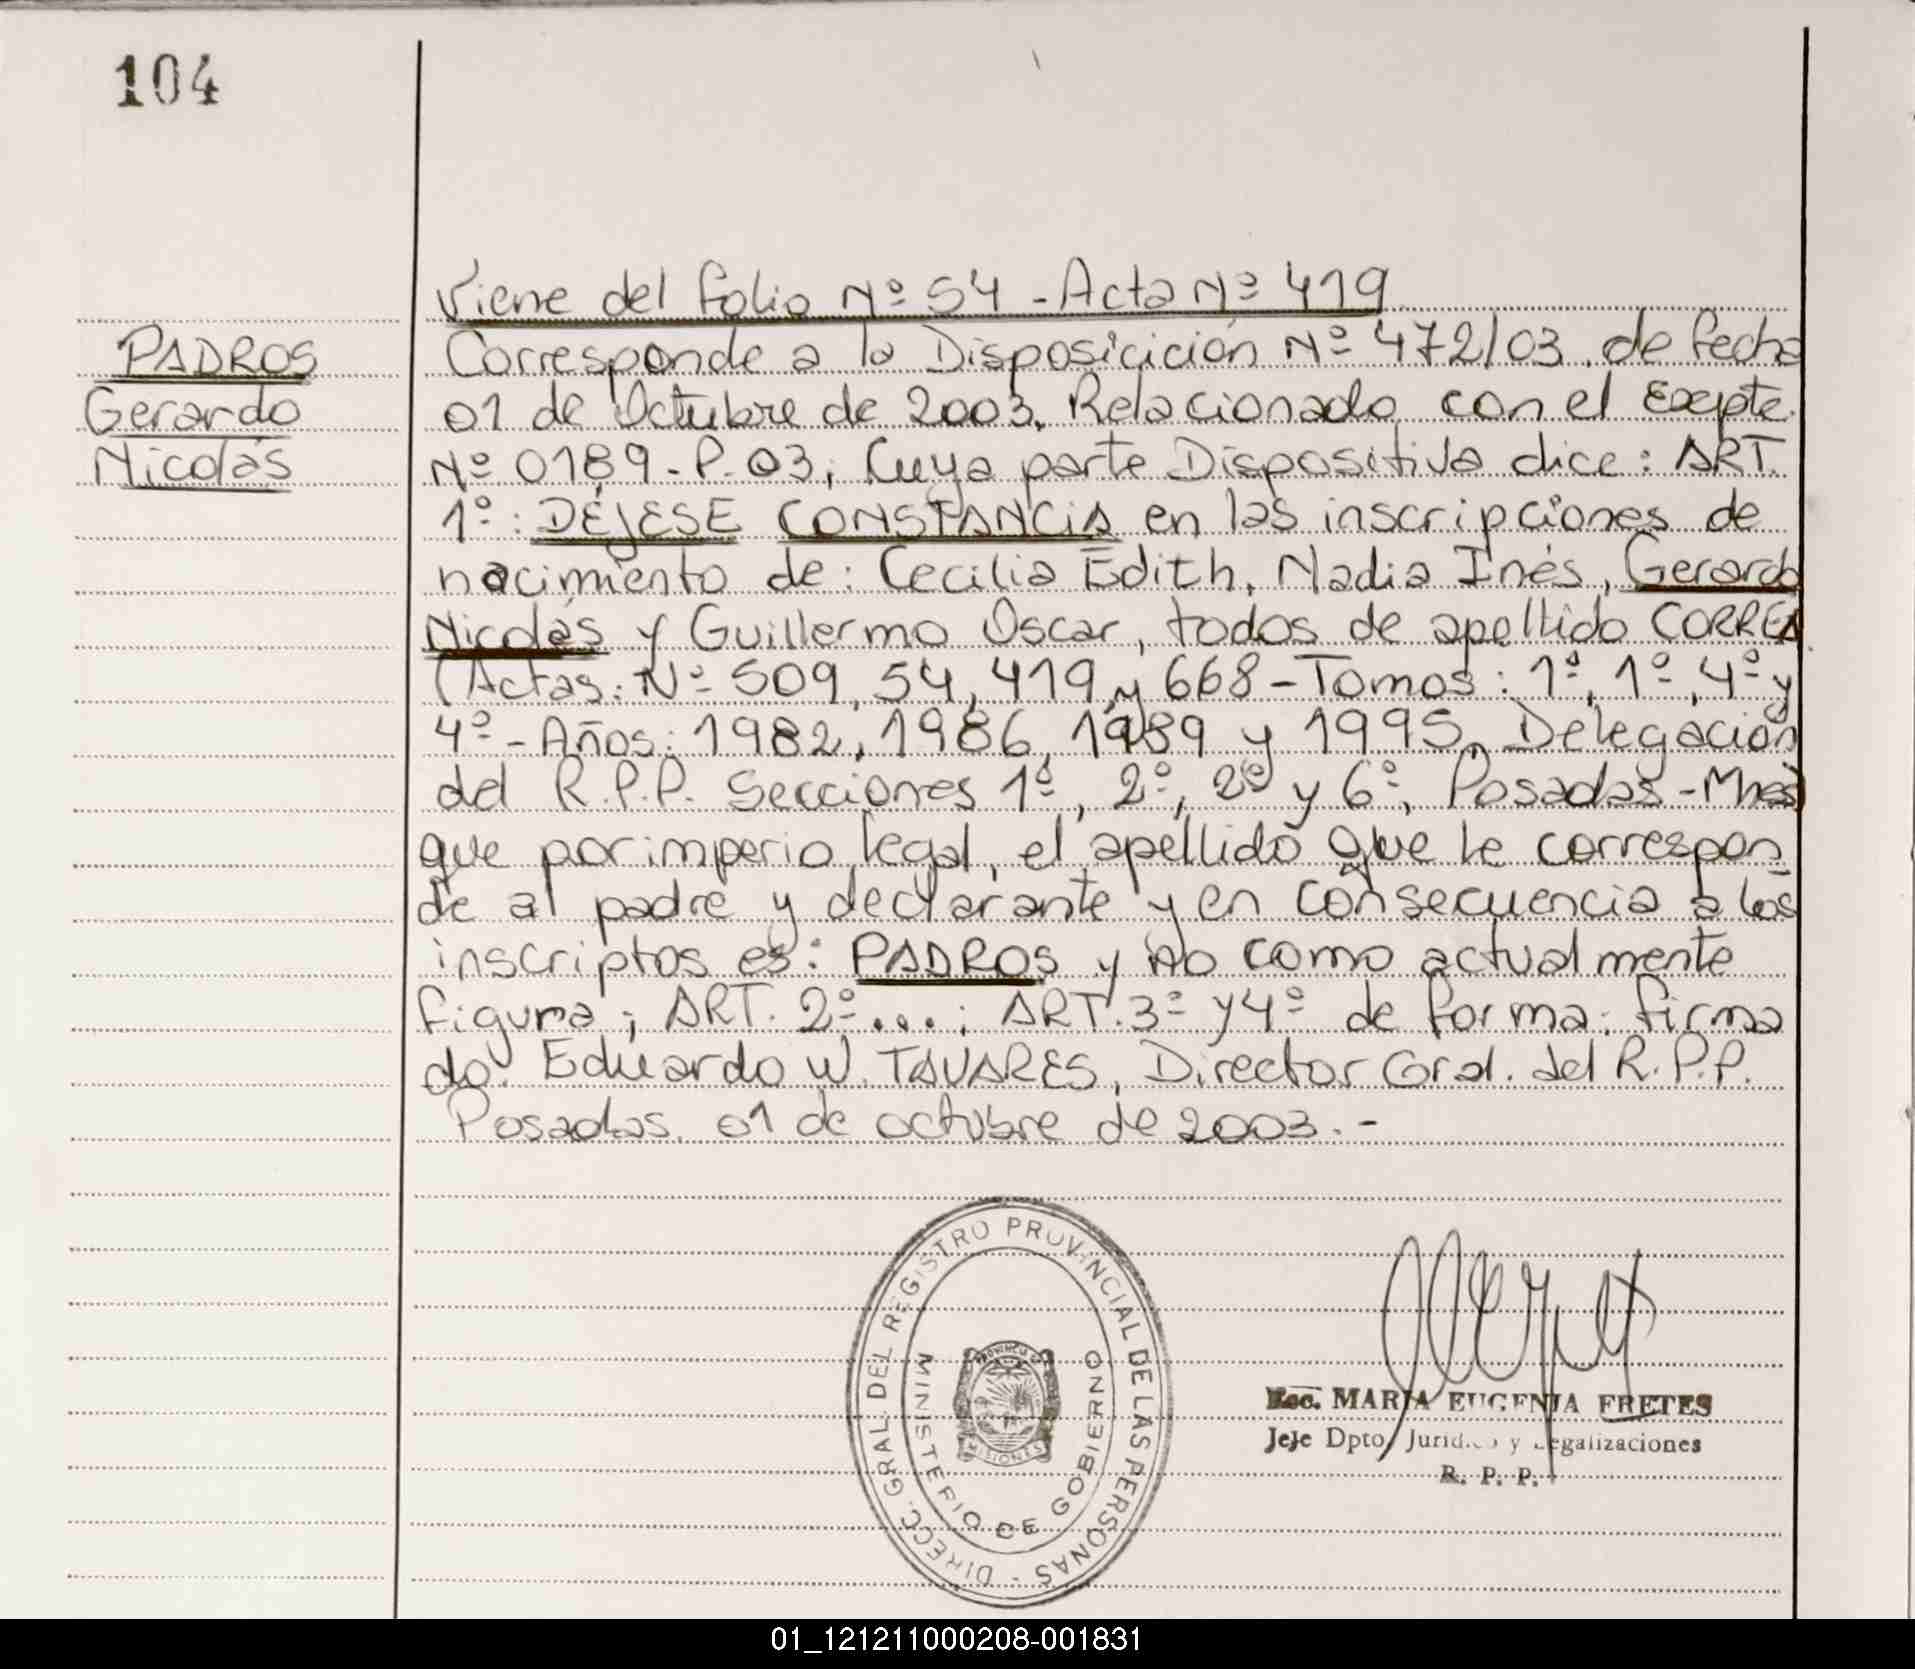 104
Viene del folio Nº 54 - Acta Nº 419
PADROS
Gerardo
Nicolás
Corresponde a la Disposicición Nº 472/03, de fecha
01 de Octubre de 2003, Relacionado con el Expte.
Nº 0189-P-03, Cuya parte Dispositiva dice: ART.
1º: DÉJESE CONSTANCIA en las inscripciones de
nacimiento de: Cecilia Edith, Nadia Inés, Gerardo
Nicolás y Guillermo Oscar, todos de apellido CORREA
(Actas: Nº 509, 54, 419 y 668 - Tomos: 1º, 1º, 4º y
4º - Años: 1982, 1986, 1989 y 1995, Delegación
del R.P.P. Secciones 1º, 2º, 2º y 6º, Posadas - Mnes)
que por imperio legal, el apellido que le correspon-
de al padre y declarante y en consecuencia a los
inscriptos es: PADROS y no como actualmente
figura; ART. 2º...; ART. 3º y 4º de forma: firma
do. Eduardo W. TAVARES, Director Gral. del R.P.P.
Posadas, 01 de octubre de 2003.-
DIRECC. GRAL. DEL REGISTRO PROVINCIAL DE LAS PERSONAS -
MINISTERIO DE GOBIERNO
PROVINCIA DE
MISIONES
Esc. MARIA EUGENIA FRETES
Jefe Dpto. Jurídico y Legalizaciones
R. P. P.
01_121211000208-001831